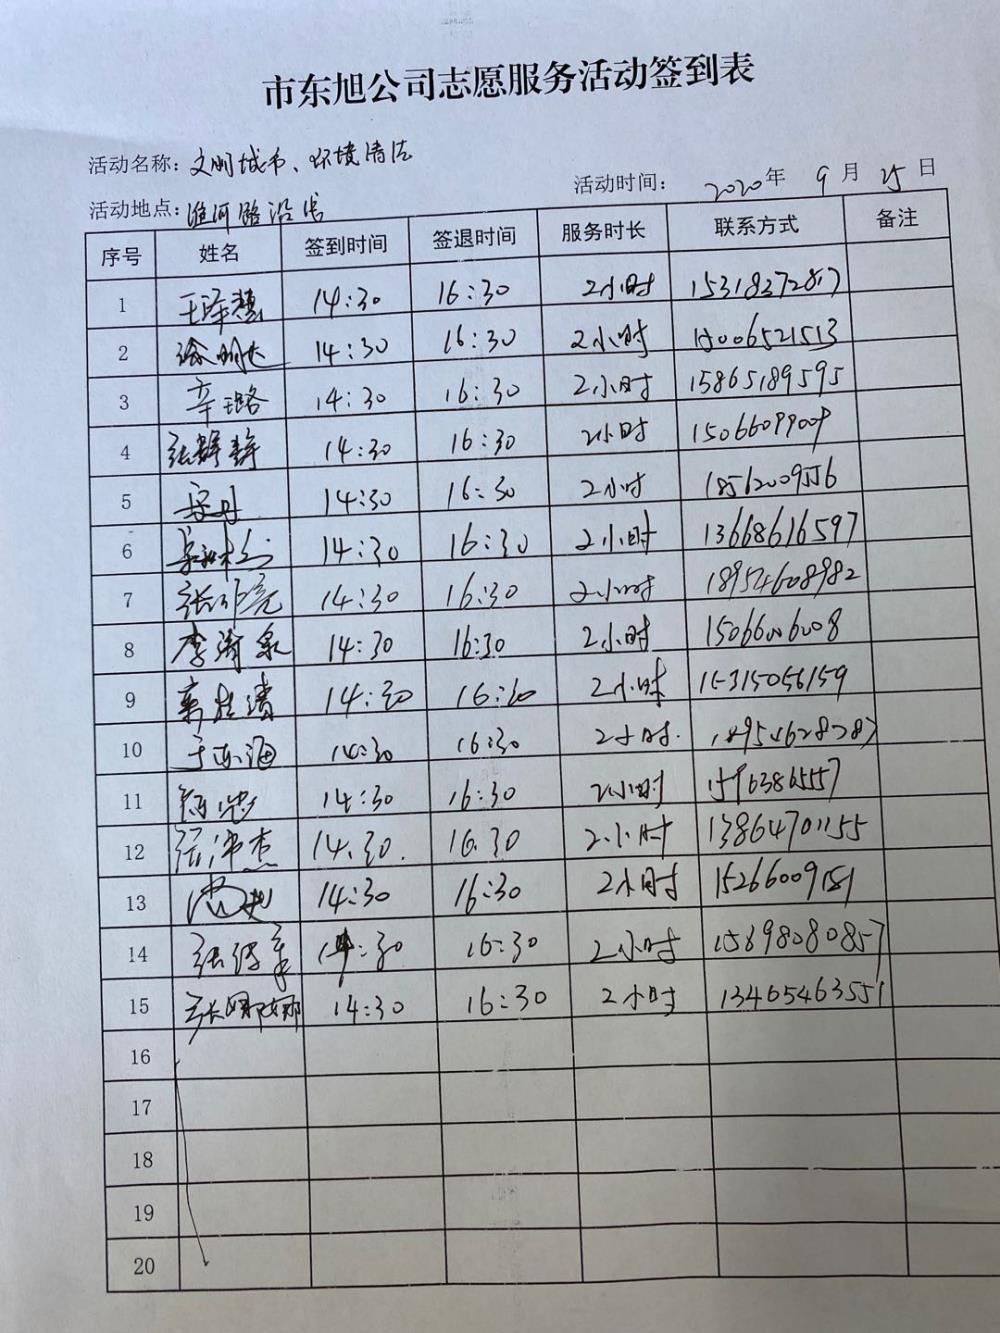 市东旭公司志愿服务活动签到表
活动名称: 文明城市、环境清洁
活动时间: 2020年 9月 25日
活动地点: 淮河路沿线
序号 姓名 签到时间 签退时间 服务时长 联系方式 备注
1 王泽慧 14:30 16:30 2小时 15318372817
2 徐明达 14:30 16:30 2小时 15006521513
3 辛璐 14:30 16:30 2小时 15865189595
4 张静静 14:30 16:30 2小时 15066099009
5 14:30 16:30 2小时 18562009556
6 14:30 16:30 2小时 13668616597
7 14:30 16:30 2小时 18954608982
8 14:30 16:30 2小时 15066006008
9 14:30 16:30 2小时 15315056159
10 于东海 14:30 16:30 2小时. 18954628787
11 14:30 16:30 2小时
12 14.30. 16.30 2.小时 13864701155
13 14:30 16:30 2小时
14 14:30 16:30 2小时 15698080857
15 张娜娜 14:30 16:30 2小时 13465463551
16
17
18
19
20